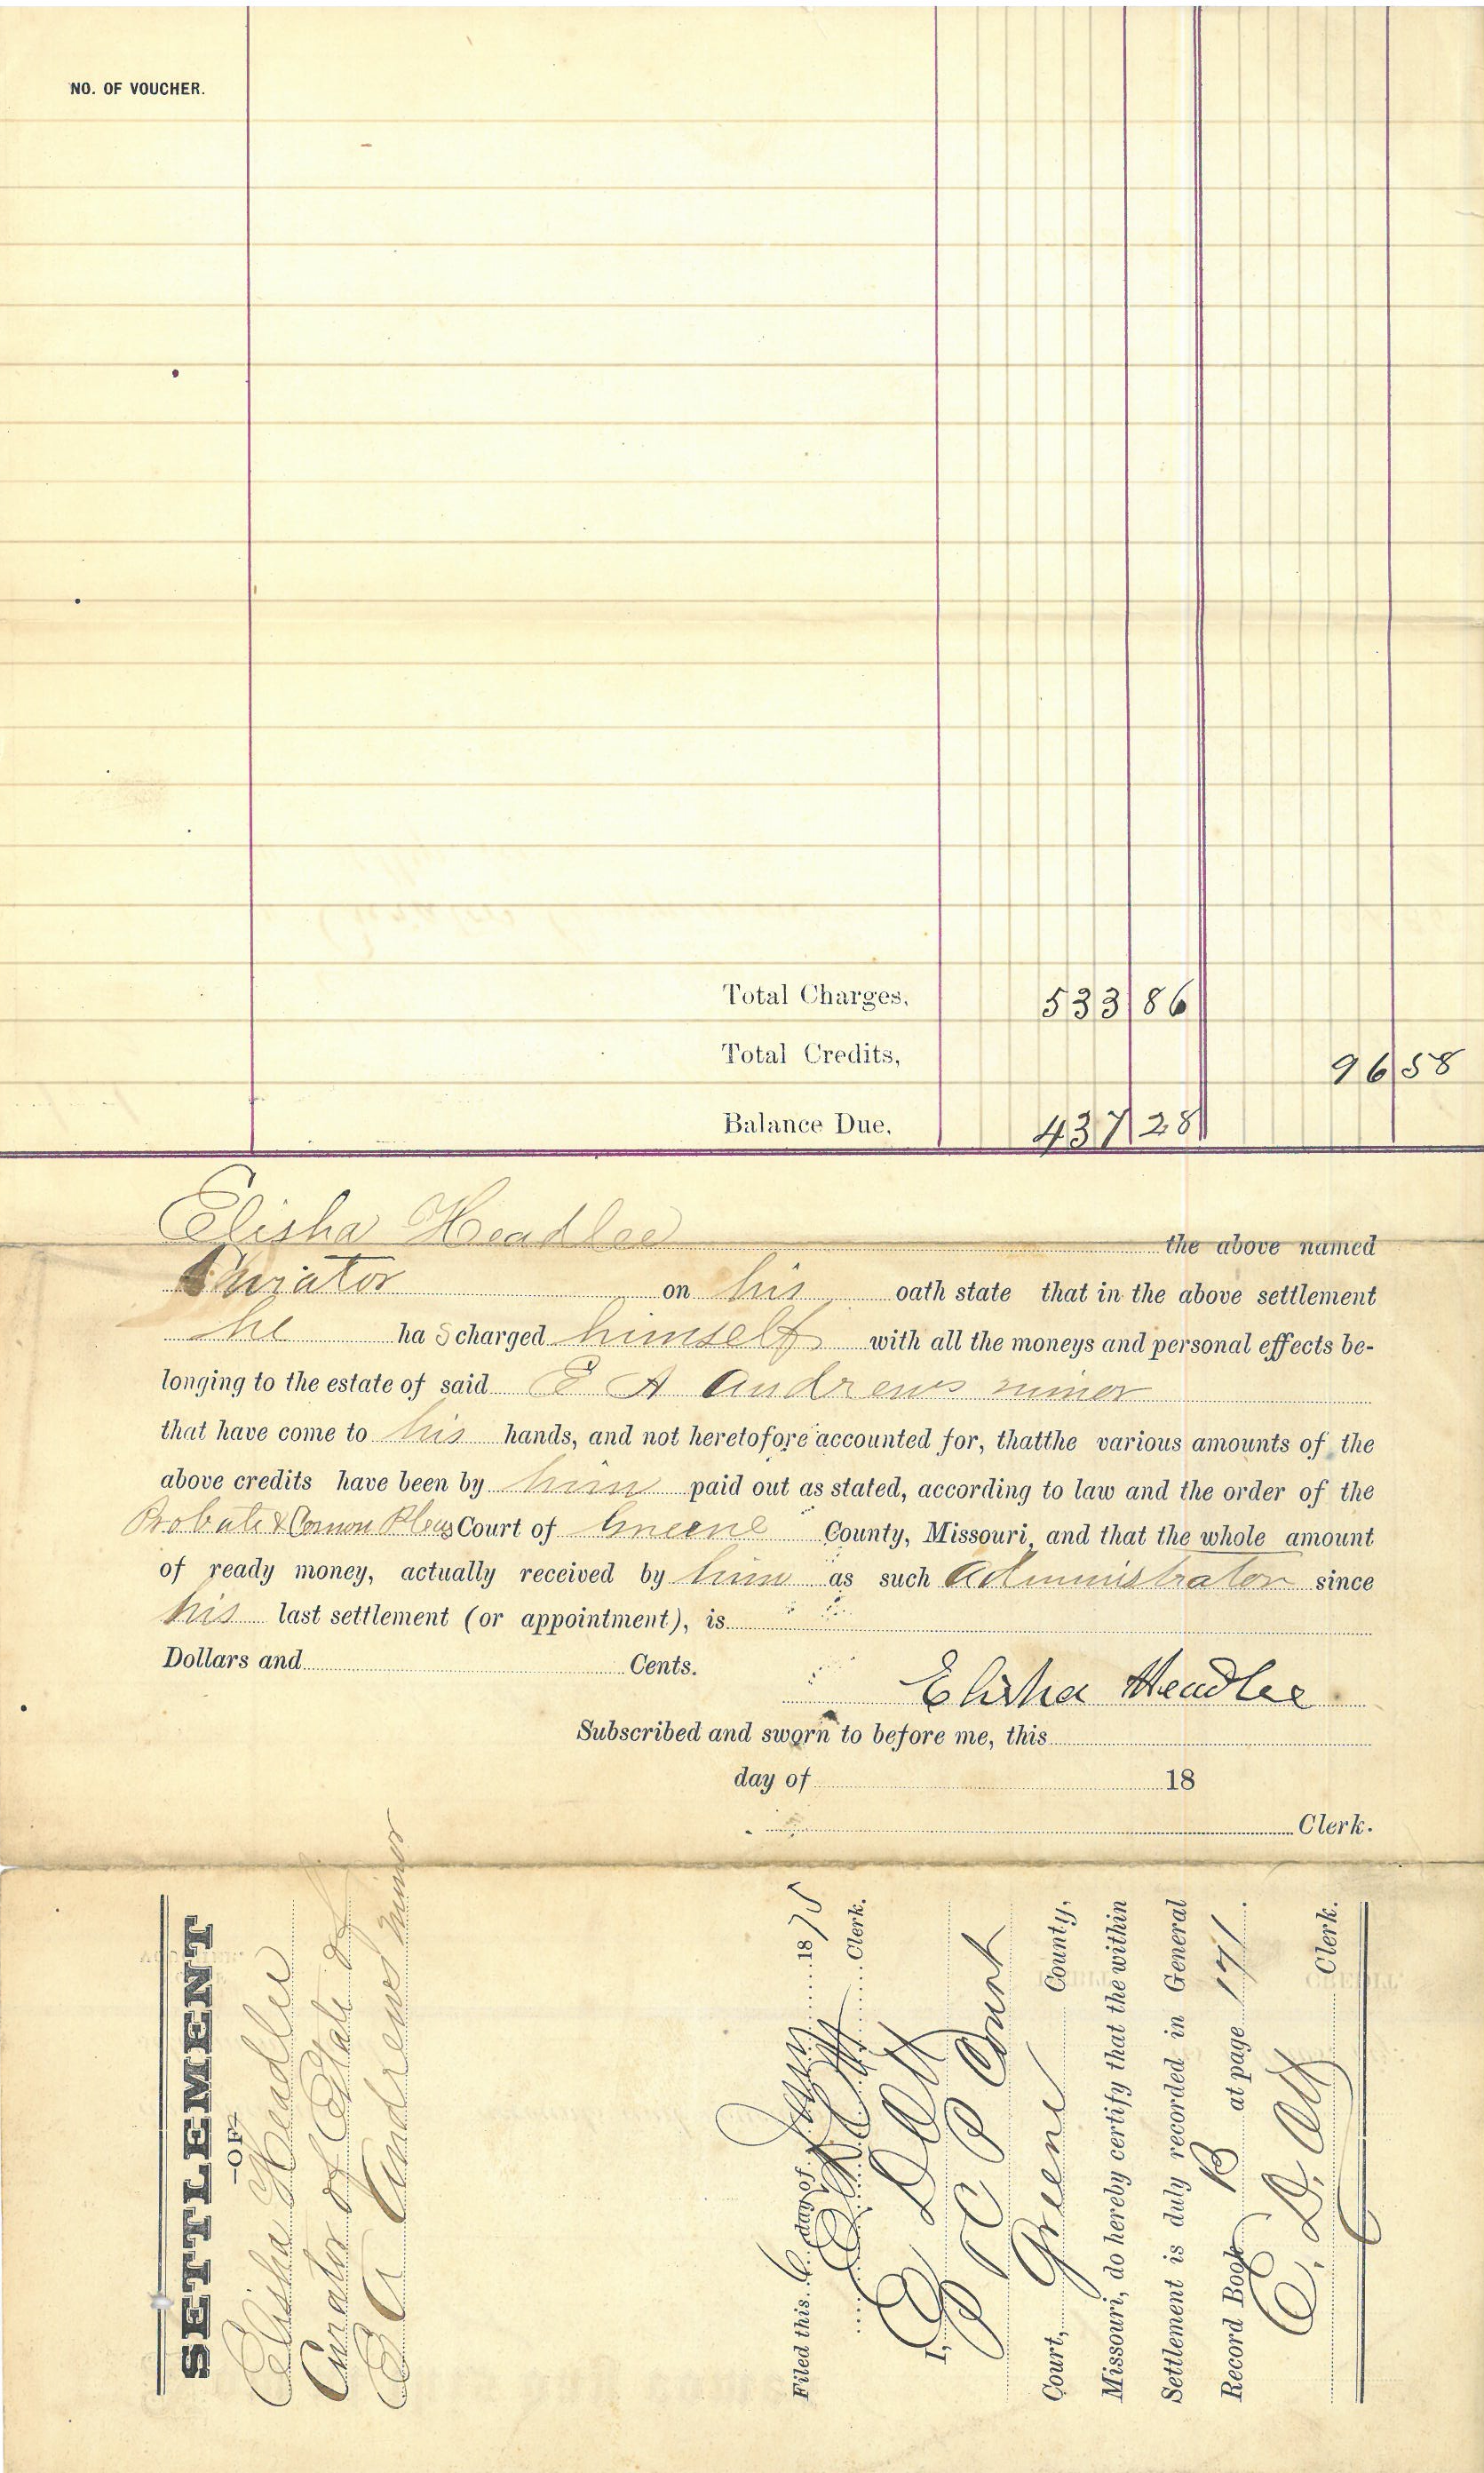 NO. OF VOUCHER.
Total Charges, 533 86
Total Credits, 96 58
Balance Due, 437 28
Elisha Headlee the above named
Curator on his oath state that in the above settlement
he ha s charged himself with all the moneys and personal effects be-
longing to the estate of said E A Andrews minor
that have come to his hands, and not heretofore accounted for, thatthe various amounts of the
above credits have been by him paid out as stated, according to law and the order of the
Probate & Common Pleas Court of Greene County, Missouri, and that the whole amount
of ready money, actually received by him as such administrator since
his last settlement (or appointment), is
Dollars and Cents.
Elisha Headlee
Subscribed and sworn to before me, this
day of 18
Clerk.
SETTLEMENT
—OF—
Elisha Headlee
Curator of Estate of
E A Andrews minor
Filed this 6 day of Jany 1875
E D Ott Clerk.
I, E D Ott
P & C P Court
Court, Greene County,
Missouri, do hereby certify that the within
Settlement is duly recorded in General
Record Book B at page 171.
E. D. Ott
Clerk.